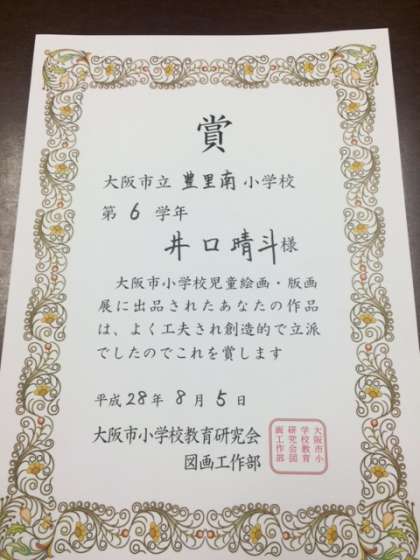 賞
大阪市立 豊里南 小学校
第 6 学年
井口晴斗様
大阪市小学校児童絵画・版画
展に出品されたあなたの作品
は、よく工夫され創造的で立派
でしたのでこれを賞します
平成 28 年 8 月 5 日
大阪市小学校教育研究会
図画工作部
大阪市小
学校教育
研究会図
画工作部